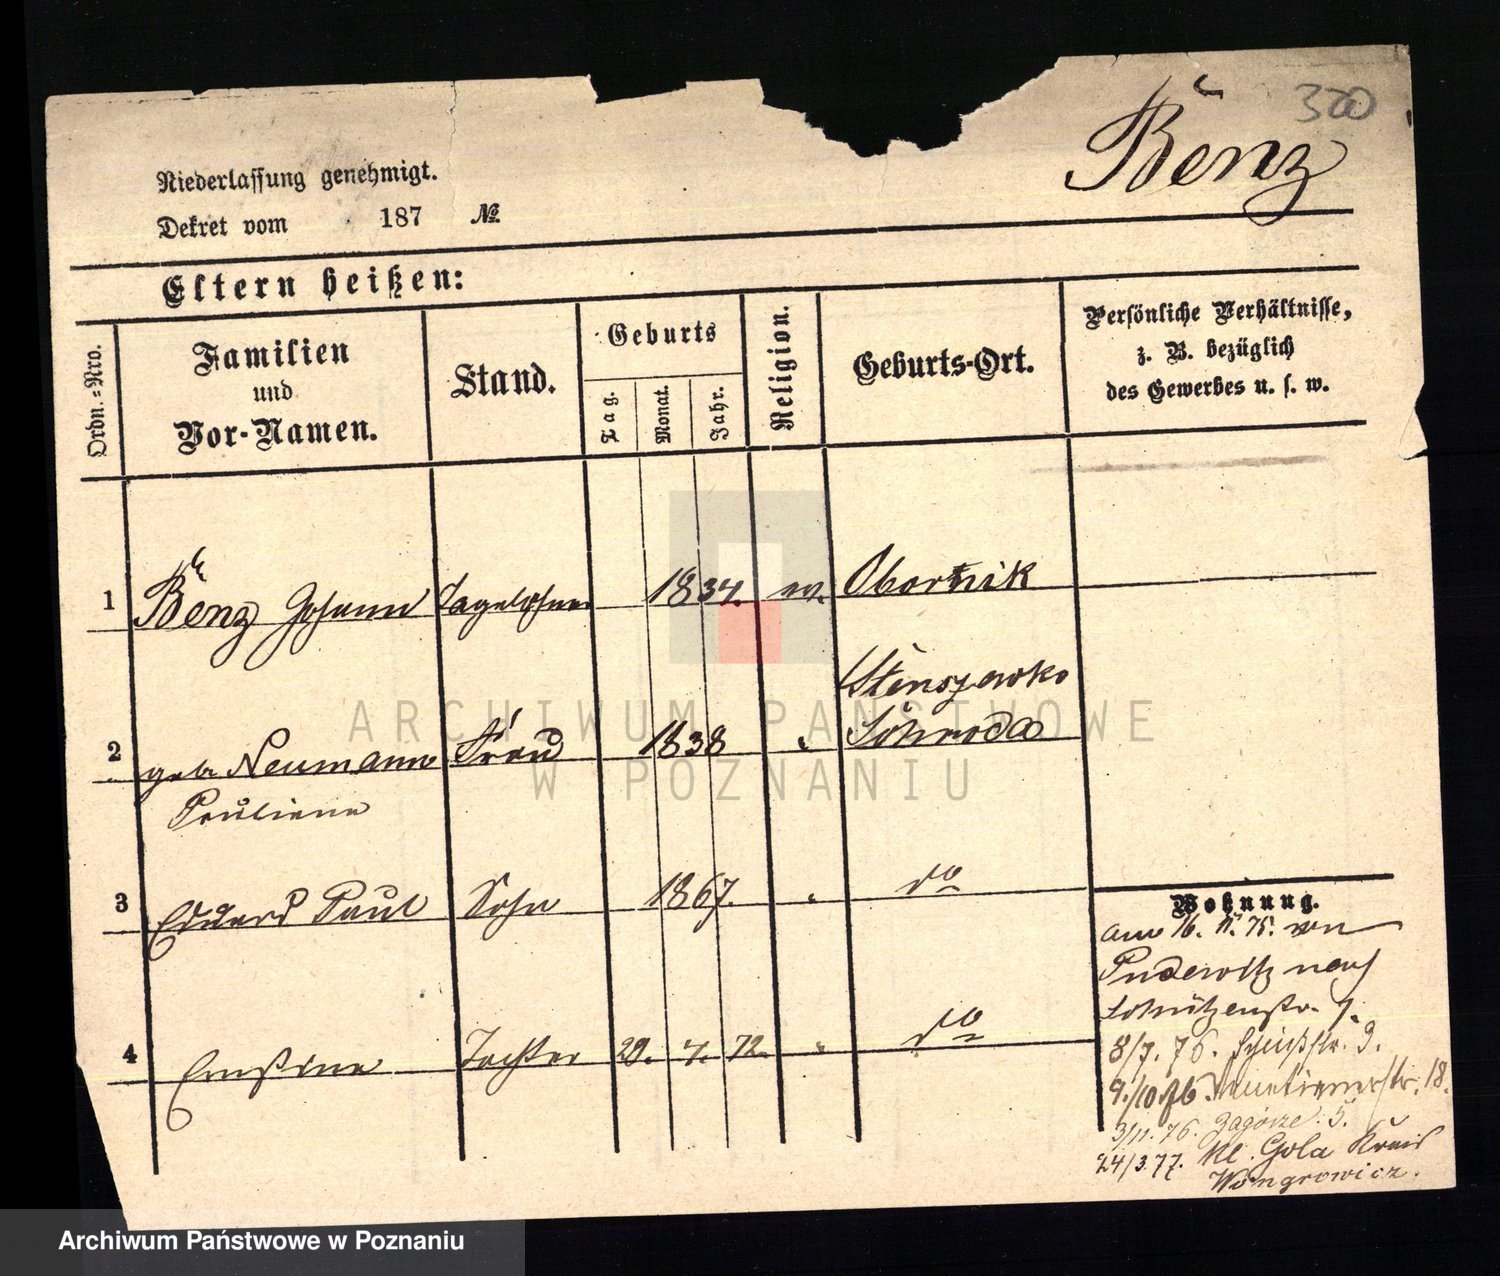 320
Benz
Niederlassung genehmigt.
Dekret vom 187 №
Eltern heißen:
Ordn.-Nro.
Familien
und
Vor-Namen.
Stand.
Geburts
Tag.
Monat.
Jahr.
Religion.
Geburts-Ort.
Persönliche Verhältnisse,
z. B. bezüglich
des Gewerbes u. s. w.
1 Benz Johann Tagelöhner 1834. ev. Obornik
Stenszewko
2 geb Neumann Frau 1838 " Schroda
Pauliene
3 Eduard Paul Sohn 1867. " do
4 Ernstine Tochter 29. 4. 72. " do
Wohnung.
am 16. 11. 75. von
Pudewitz nach
Schützenstr. 7.
8/7. 76. Schießstr. 9.
9./10 76. 18.
3/11. 76. Zagorze 5.
24/3.77. Kl. Gola Kreis
Wongrowicz.
ARCHIWUM PAŃSTWOWE
W POZNANIU
Archiwum Państwowe w Poznaniu